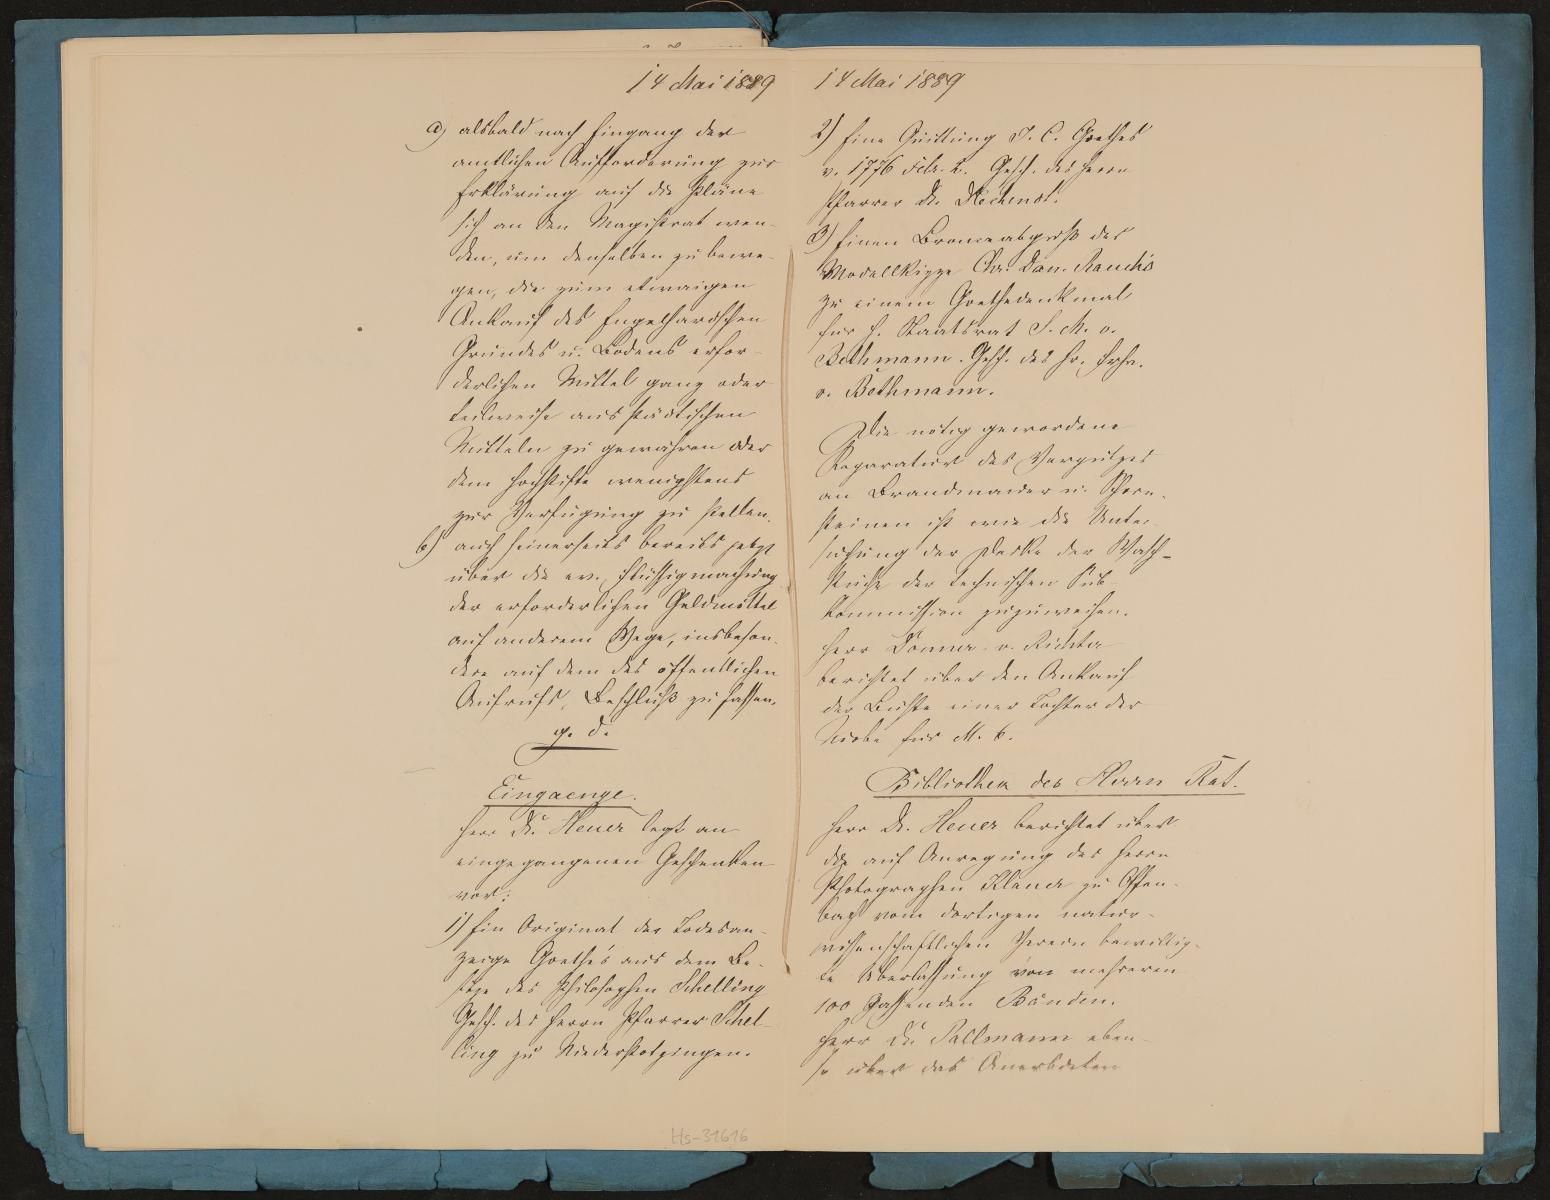 14 Mai 1889
a) alsbald nach Eingang der
amtlichen Aufforderung zur
Erklärung auf die Pläne
sich an den Magistrat wen-
den, um denselben zu bewe-
gen, die zum etwaigen
Ankauf des Engelhardschen
Grundes u. Bodens erfor-
derlichen Mittel ganz oder
teilweise aus städtischen
Mitteln zu gewähren oder
dem Hochstifte wenigstens
zur Verfügung zu stellen.
b) auch seinerseits bereits jetzt
über die ev. Flüssigmachung
der erforderlichen Geldmittel
auf anderem Wege, insbeson-
dere auf dem des öffentlichen
Aufrufs, Beschluß zu fassen.
g. d.
Eingaenge.
Herr Dr. Heuer legt an
eingegangenen Geschenken
vor:
1) Ein Original der Todesan-
zeige Goethe's aus dem Be-
sitze des Philosophen Schelling
Gesch. des Herrn Pfarrer Schel-
ling zu Niederstotzingen.
Hs-31616
14 Mai 1889
2) Eine Quittung J. C. Goethes
v. 1776 Febr. 2. Gesch. des Herrn
Pfarrer Dr. Dechent.
3) Einen Bronceabguß der
Modellskizze Chr. Dan. Rauch's
zu einem Goethedenkmal
für H. Staatsrat S. M. v.
Bethmann. Gesch. des Hr. Frhr.
v. Bethmann.
Die nötig gewordene
Reparatur des Verputzes
an Brandmauer u. Schorn-
steinen ist wie die Unter-
suchung der Decke der Wasch-
küche der technischen Sub-
kommission zuzuweisen.
Herr Donner-v. Richter
berichtet über den Ankauf
der Büste einer Tochter der
Niobe für M. 6.
Bibliothek des Herrn Rat.
Herr Dr. Heuer berichtet über
die auf Anregung des Herrn
Photographen zu Offen-
bach vom dortigen natur-
wissenschaftlichen Verein bewillig-
te Überlassung von mehreren
100 passenden Bänden.
Herr Dr. Pallmann eben-
so über das Anerbieten